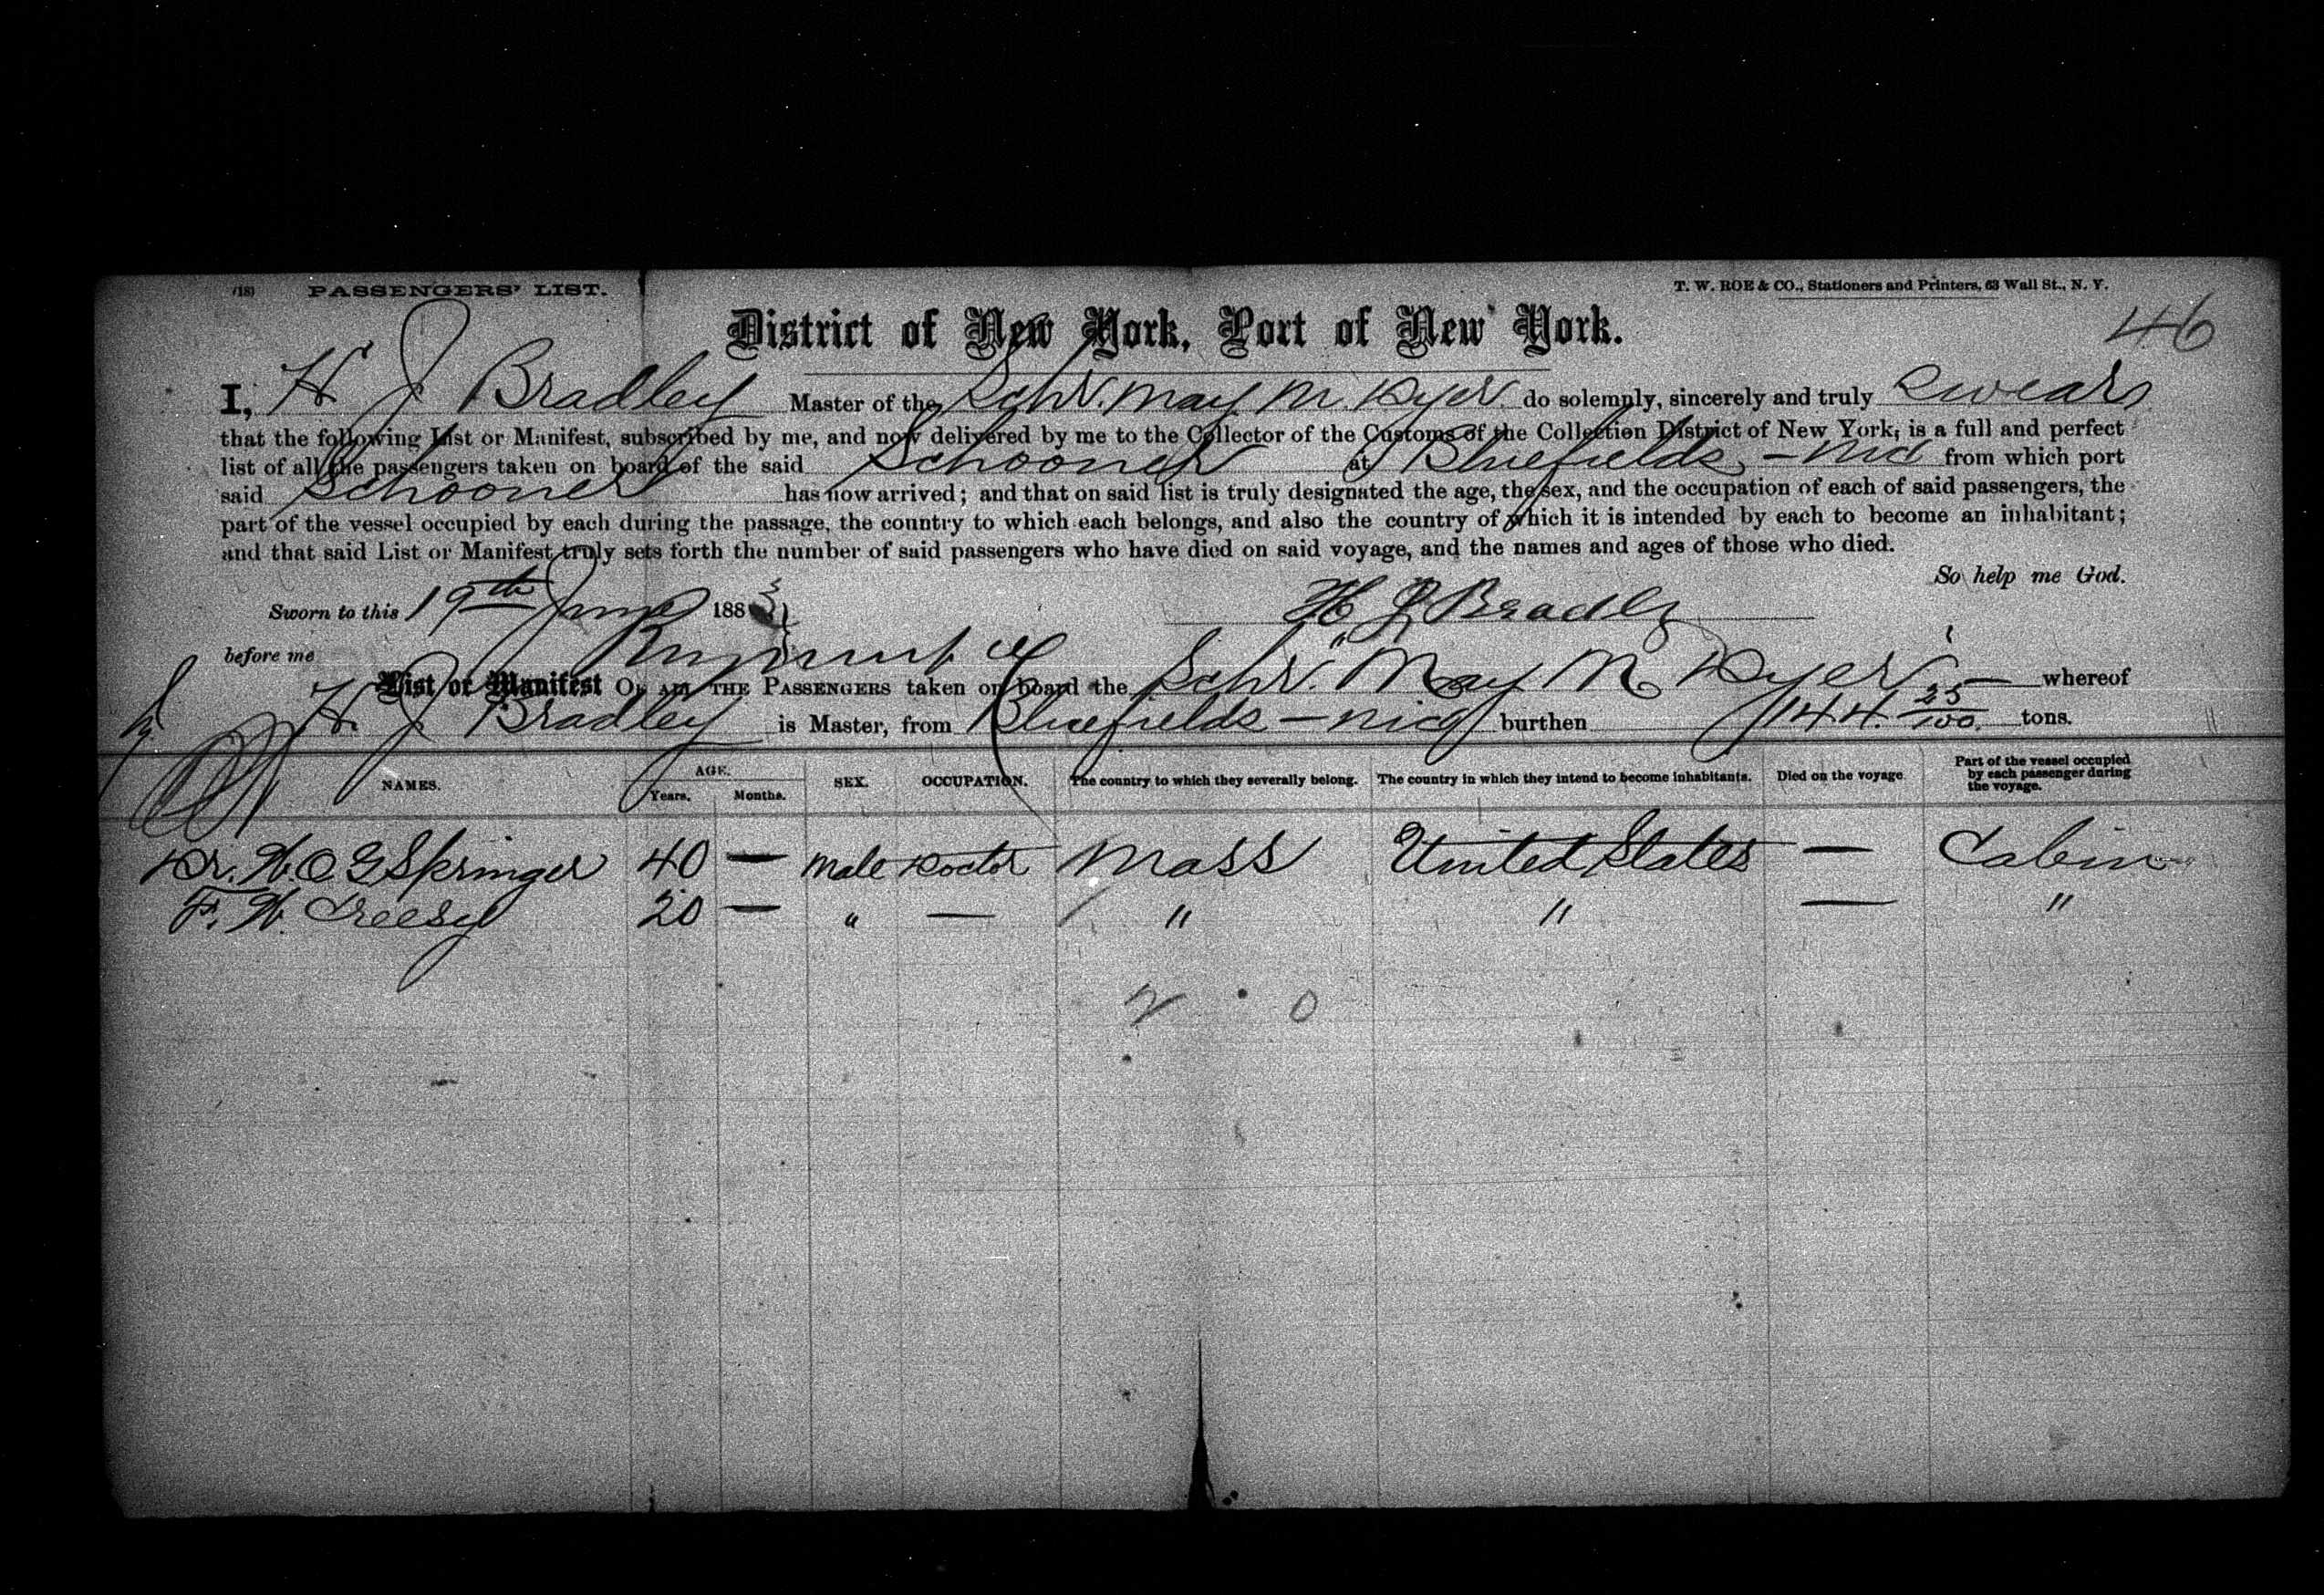 (18) PASSENGERS' LIST.
T. W. ROE & CO., Stationers and Printers, 63 Wall St., N. Y.
46
District of New York, Port of New York.
I, H J Bradley Master of the Schr. May M. Dyer do solemnly, sincerely and truly Swear
that the following List or Manifest, subscribed by me, and now delivered by me to the Collector of the Customs of the Collection District of New York, is a full and perfect
list of all the passengers taken on board of the said Schooner at Bluefields – Nic from which port
said Schooner has now arrived; and that on said list is truly designated the age, the sex, and the occupation of each of said passengers, the
part of the vessel occupied by each during the passage, the country to which each belongs, and also the country of which it is intended by each to become an inhabitant;
and that said List or Manifest truly sets forth the number of said passengers who have died on said voyage, and the names and ages of those who died.
So help me God.
Sworn to this 19th 1883 H J Bradley
before me
List or Manifest OF ALL THE PASSENGERS taken on board the Schr. "May M Dyer" whereof
H. J Bradley is Master, from Bluefields – Nic burthen 144 25/100 tons.
NAMES. AGE. Years. Months. SEX. OCCUPATION. The country to which they severally belong. The country in which they intend to become inhabitants. Died on the voyage Part of the vessel occupied by each passenger during the voyage.
Dr. W. O. G Springer 40 — Male Doctor Mass United States — Cabin
F. W. Creesy 20 — " — " " — "
2 0